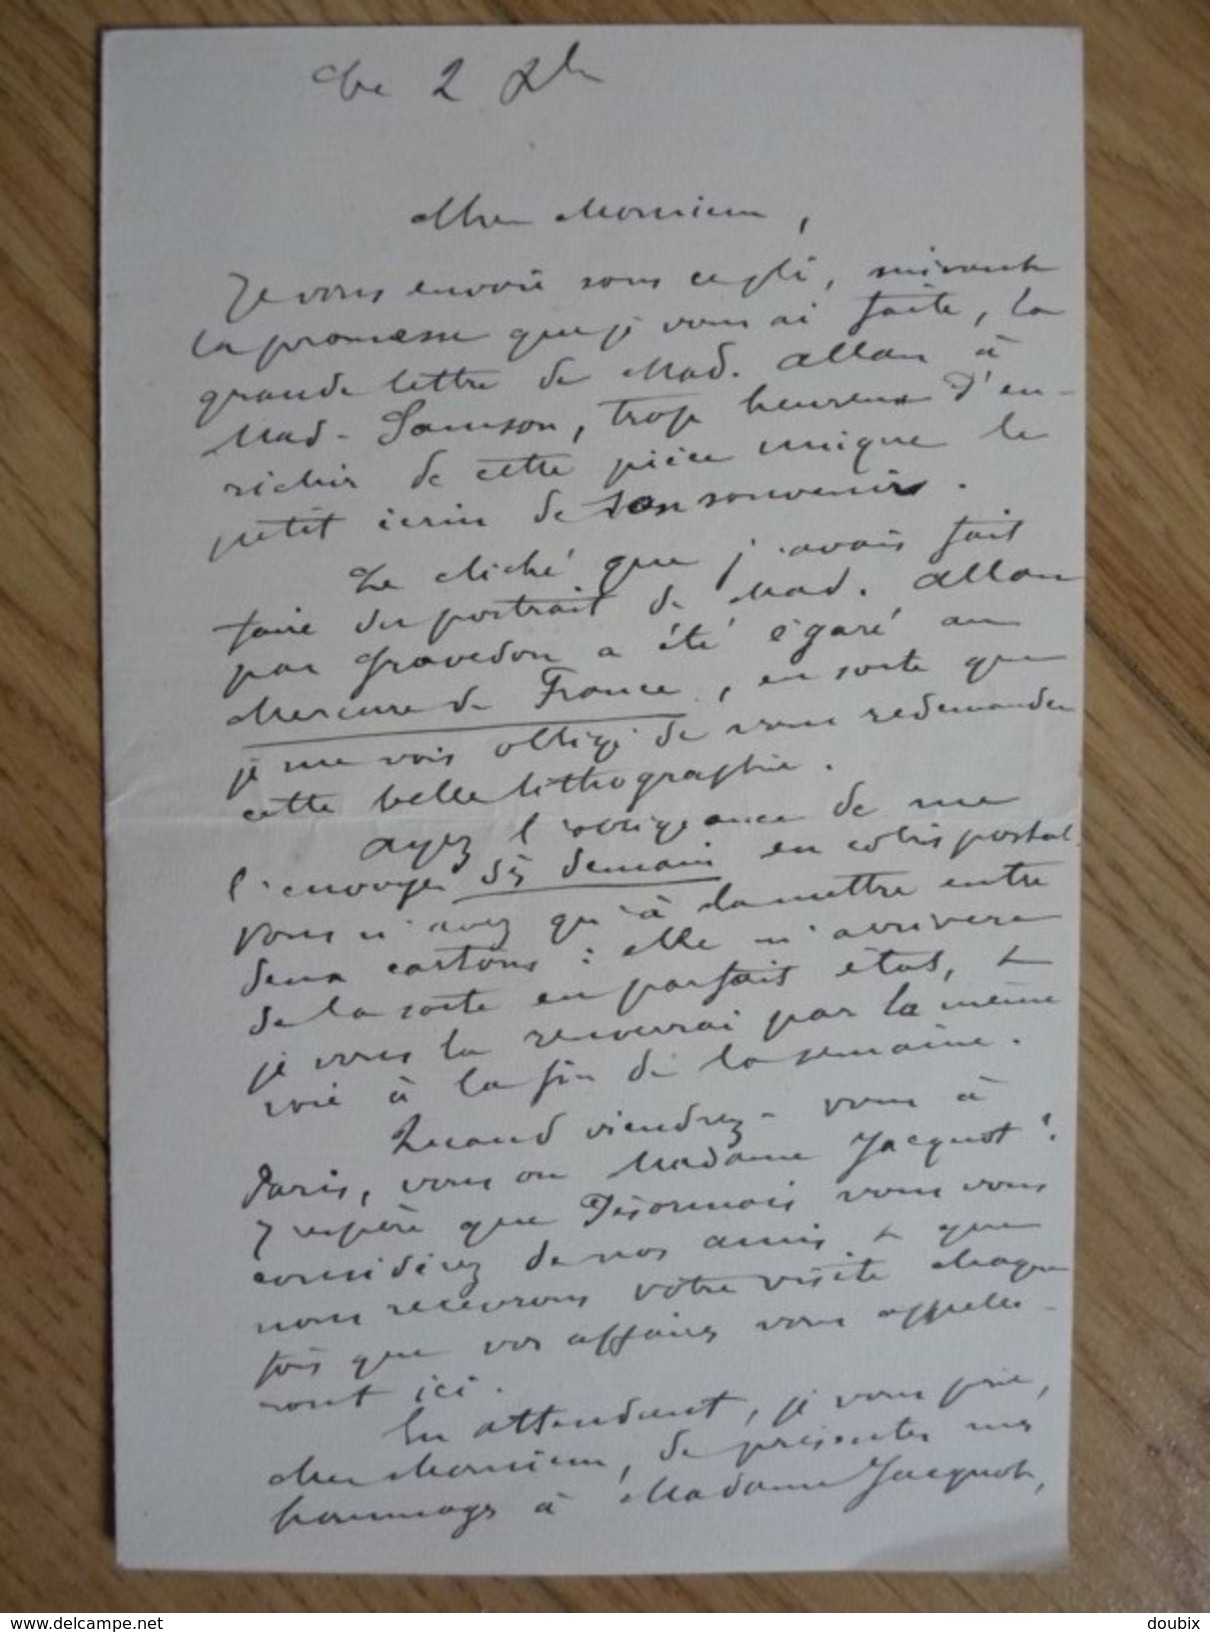 Ce 2
Cher Monsieur,
Je vous envoie sous ce pli, suivant
la promesse que je vous ai faite, la
grande lettre de Mad. Allan à
Mad. Samson, trop heureux d'en-
richir de cette pièce unique le
petit écrin de son souvenir.
Le cliché que j'avais fait
faire du portrait de Mad. Allan
par Grevedon a été égaré au
Mercure de France, en sorte que
je me vois obligé de vous redemander
cette belle lithographie.
Ayez l'obligeance de me
l'envoyer dès demain en colis postal.
Vous n'avez qu'à la mettre entre
deux cartons : elle m'arrivera
de la sorte en parfait état, &
je vous la renverrai par la même
voie à la fin de la semaine.
Quand viendrez-vous à
Paris, vous ou Madame Jacquot ?
J'espère que désormais vous vous
considérez de nos amis & que
nous recevrons votre visite chaque
fois que vos affaires vous appelle-
ront ici.
En attendant, je vous prie,
cher Monsieur, de présenter mes
hommages à Madame Jacquot,
delcampe.net
doubix